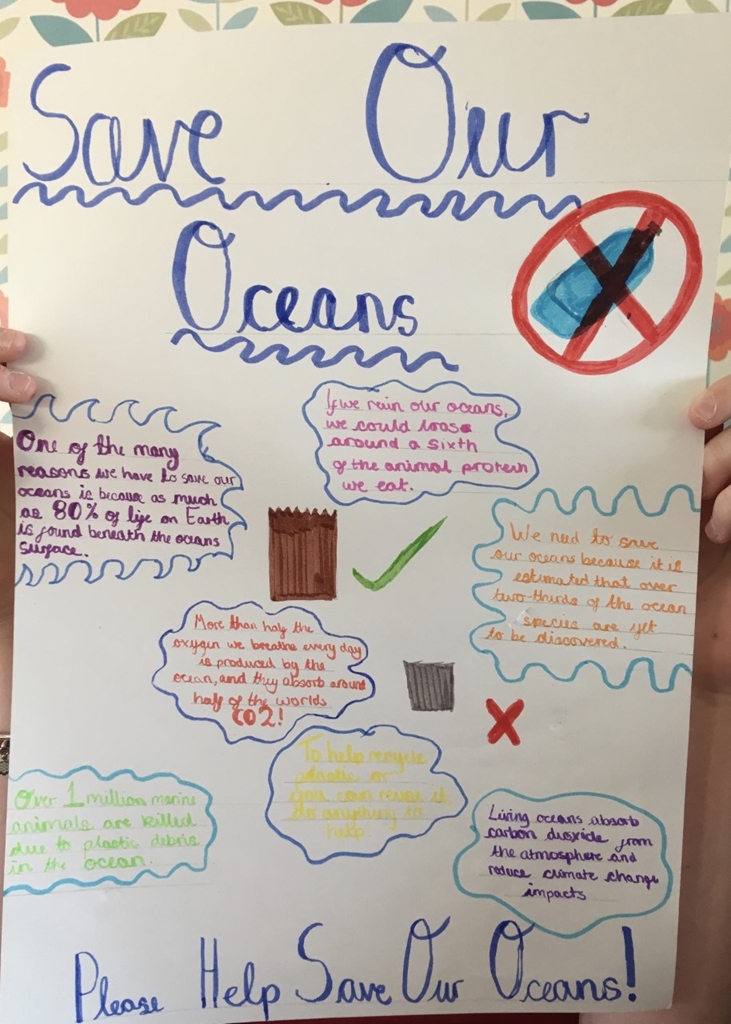 Save Our
Oceans
If we ruin our oceans,
we could loose
around a sixth
of the animal protein
we eat.
One of the many
reasons we have to save our
oceans is because as much
as 80% of life on Earth
is found beneath the oceans
surface.
We need to save
our oceans because it is
estimated that over
two-thirds of the ocean
species are yet
to be discovered.
More than half the
oxygen we breathe every day
is produced by the
ocean, and they absorb around
half of the worlds
CO2!
To help recycle
plastic or
you can reuse it
do anything to
help.
Over 1 million marine
animals are killed
due to plastic debris
in the ocean.
Living oceans absorb
carbon dioxide from
the atmosphere and
reduce climate change
impacts
Please Help Save Our Oceans!